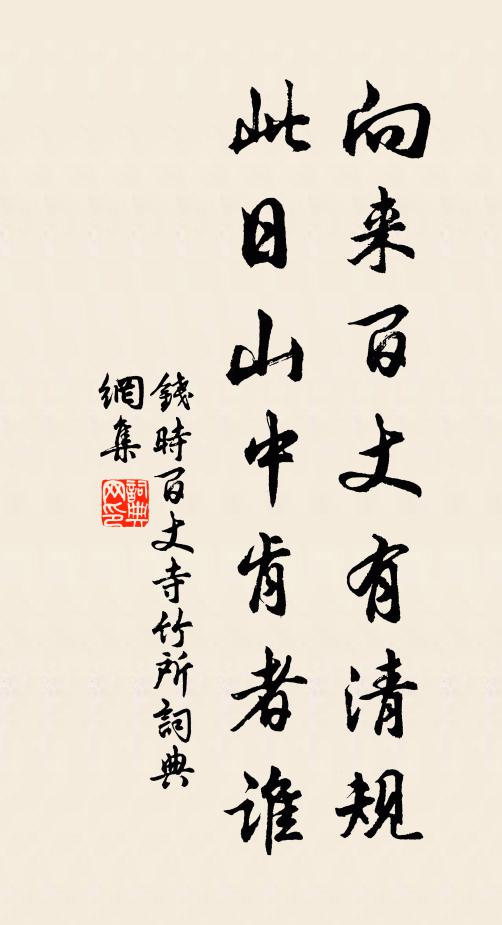 向来百丈有清规
此日山中肯者谁
錢時百丈寺竹所詞典
網集
詞典
网印